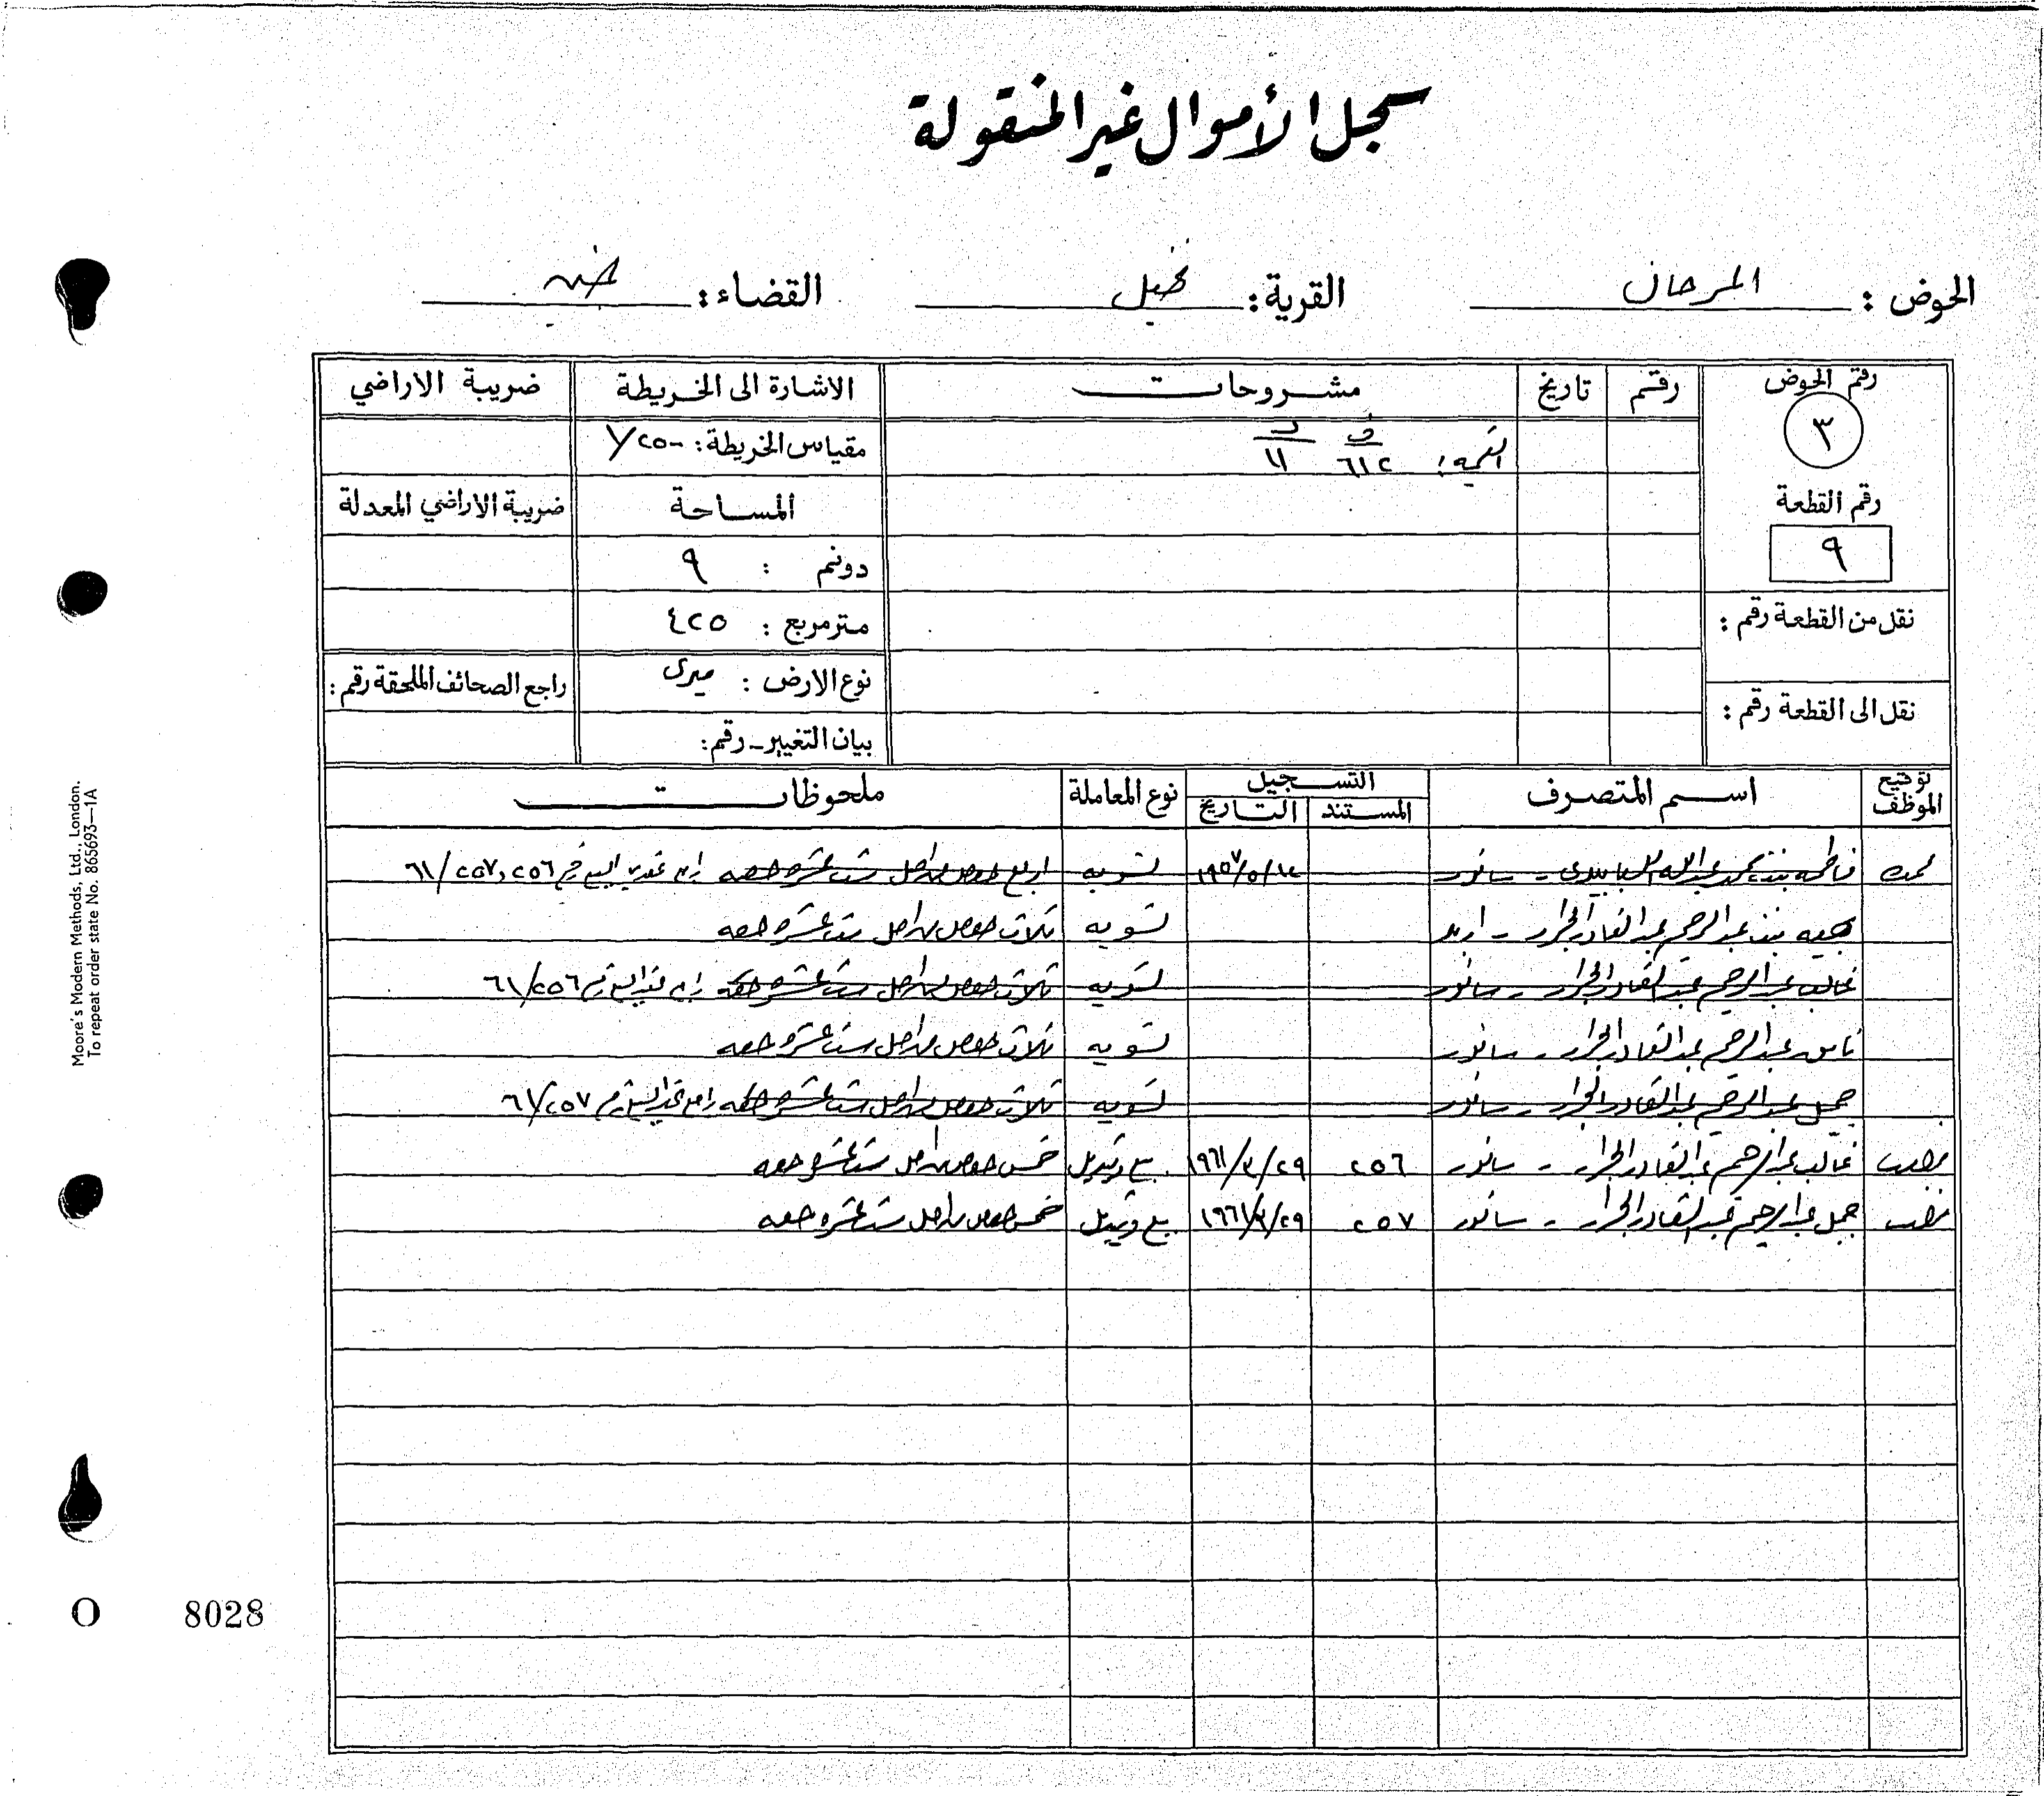 سجل الأموال غير المنقولة
الحوض : المرحان القرية: القضاء: جنين
رقم الحوض رقم تاريخ مشروحات الاشارة الى الخريطة ضريبة الاراضي
٣ القيمة: ف ٦١٢ د ١١ مقياس الخريطة: ١/٢٥٠٠
رقم القطعة المساحة ضريبة الاراضي المعدلة
٩ دونم : ٩
نقل من القطعة رقم : متر مربع : ٤٢٥
نوع الارض : ميري راجع الصحائف الملحقة رقم :
نقل الى القطعة رقم : بيان التغيير - رقم:
توقيع الموظف اسم المتصرف التسجيل نوع المعاملة ملحوظات
المستند التاريخ
فاطمه بنت محمد عبدالله - سانور ١٩٥٧/٥/١٤ تسويه اربع حصص من اصل ست عشره حصه راجع عقدي البيع رقم ٢٥٦، ٢٥٧/٦١
بنت عبد الرحيم عبد القادر الجرار - اربد تسويه ثلاث حصص من اصل ست عشره حصه
غالب عبد الرحيم عبد القادر الجرار - سانور تسويه ثلاث حصص من اصل ست عشره حصه راجع عقد البيع رقم ٢٥٦/٦١
عبد الرحيم عبد القادر الجرار - سانور تسويه ثلاث حصص من اصل ست عشره حصه
جميل عبد الرحيم عبد القادر الجرار - سانور تسويه ثلاث حصص من اصل ست عشره حصه راجع عقد البيع رقم ٢٥٧/٦١
غالب عبد الرحيم عبد القادر الجرار - سانور ٢٥٦ ١٩٦١/٤/٢٩ بيع وتبديل خمس حصص من اصل ست عشره حصه
جميل عبد الرحيم عبد القادر الجرار - سانور ٢٥٧ ١٩٦١/٤/٢٩ بيع وتبديل خمس حصص من اصل ست عشره حصه
Moore's Modern Methods, Ltd., London.
To repeat order state No. 865693—1A
O 8028